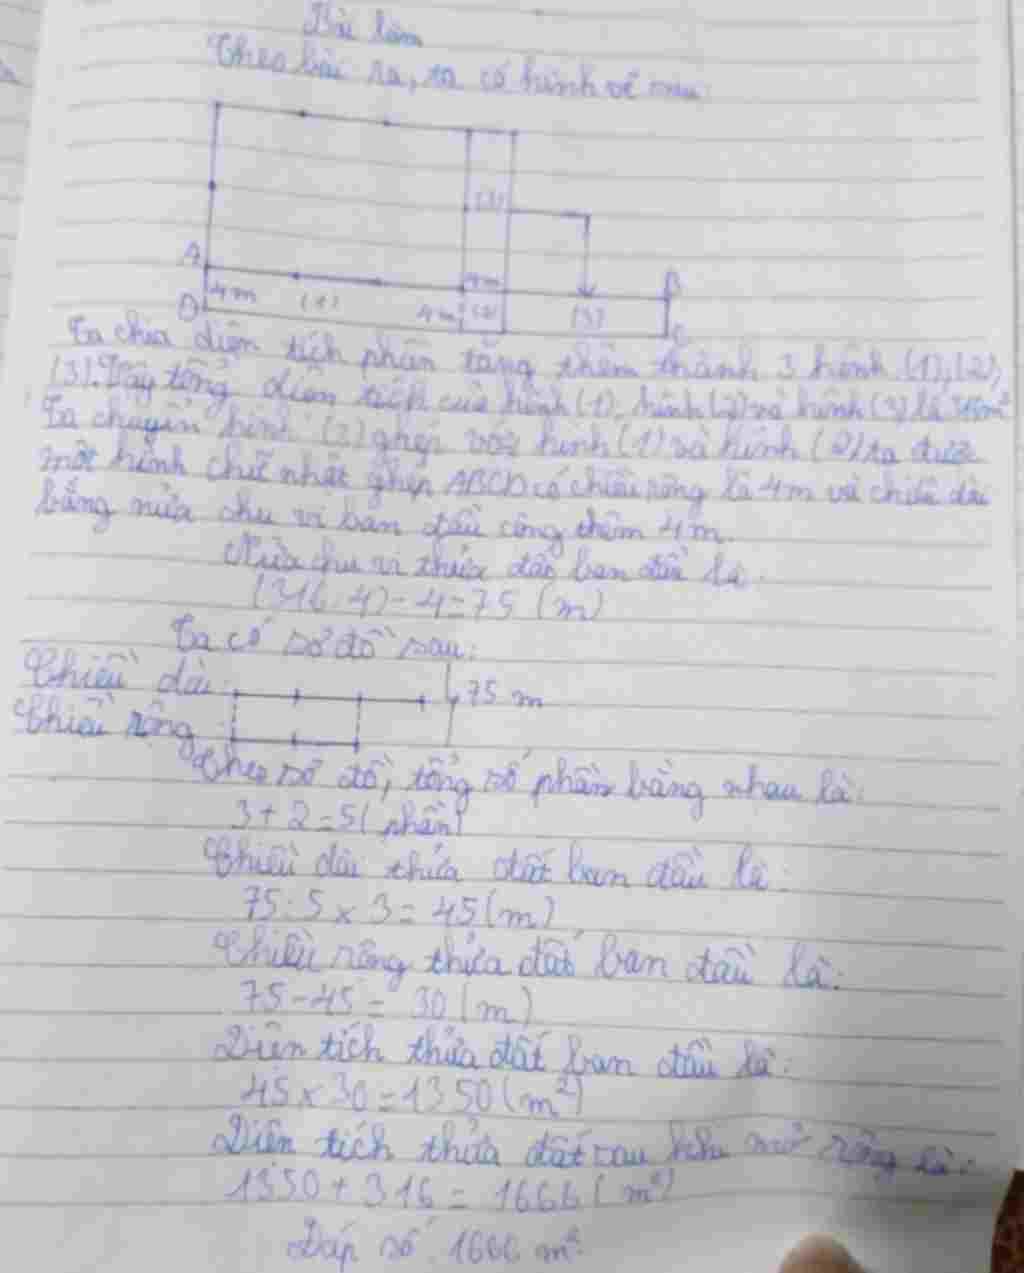 Bài làm
Theo bài ra, ta có hình vẽ sau:
(3)
A
4m
B
4m
(1)
4m
(2)
(3)
D
C
Ta chia diện tích phần tăng thêm thành 3 hình (1), (2),
(3). Vậy tổng diện tích của hình (1), hình (2) và hình (3) là 316m²
Ta chuyển hình (3) ghép với hình (1) và hình (2) ta được
một hình chữ nhật ghép ABCD có chiều rộng là 4m và chiều dài
bằng nửa chu vi ban đầu cộng thêm 4m.
Nửa chu vi thửa đất ban đầu là:
(316 : 4) - 4 = 75 (m)
Ta có sơ đồ sau:
Chiều dài:
75 m
Chiều rộng
Theo sơ đồ, tổng số phần bằng nhau là:
3 + 2 = 5 (phần)
Chiều dài thửa đất ban đầu là:
75 : 5 x 3 = 45 (m)
Chiều rộng thửa đất ban đầu là:
75 - 45 = 30 (m)
Diện tích thửa đất ban đầu là:
45 x 30 = 1350 (m²)
Diện tích thửa đất sau khi mở rộng là:
1350 + 316 = 1666 (m²)
Đáp số: 1666 m²